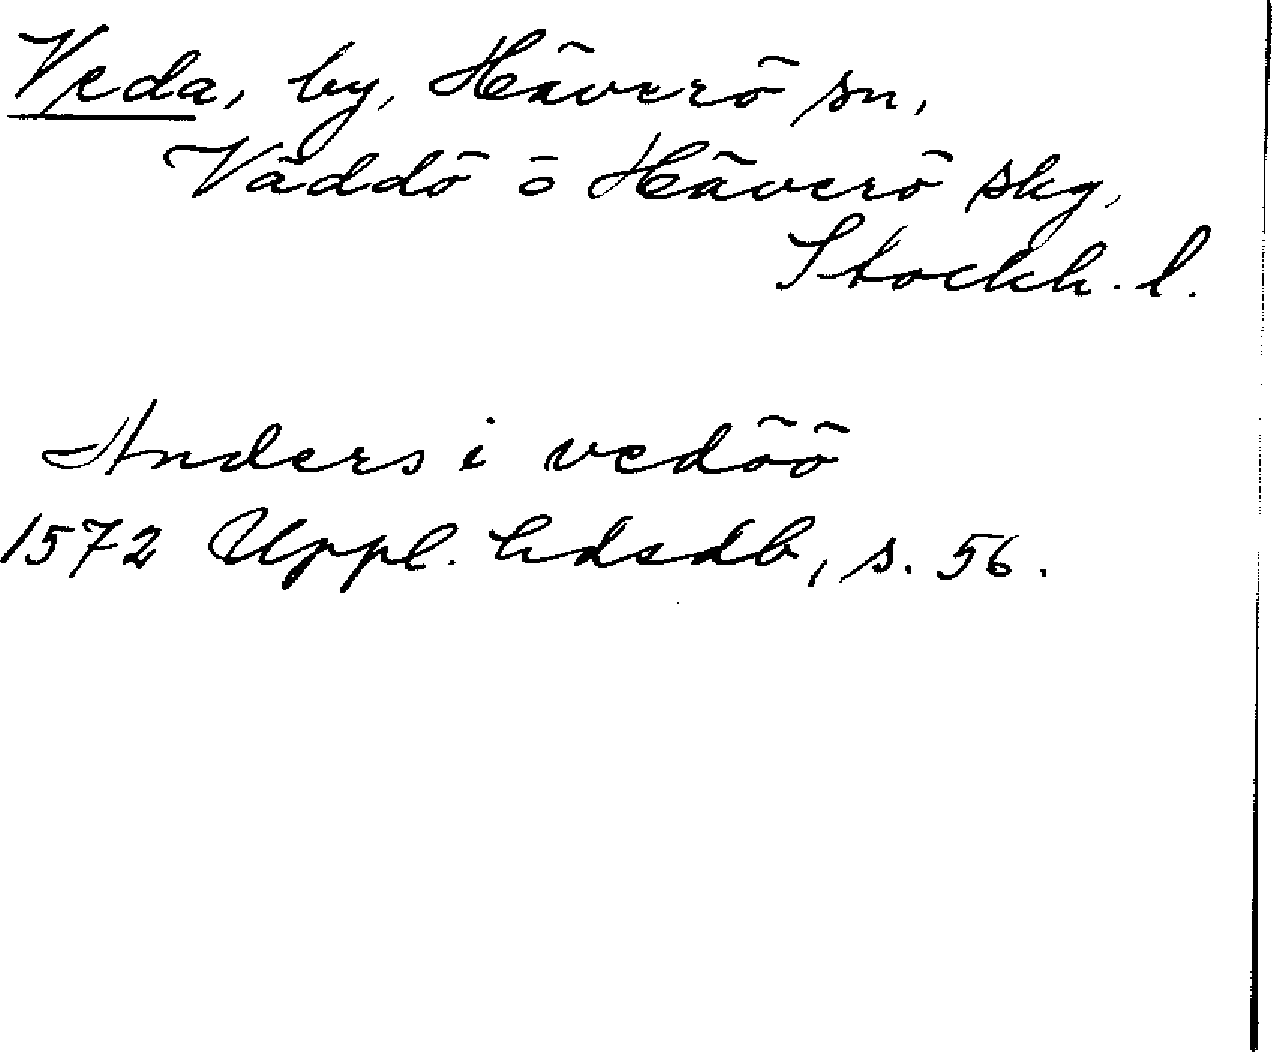 Veda, by, Häverö sn,
Väddö o Häverö skg,
Stockh. l.
Anders i vedöö
1572 Uppl. hdsdb, s. 56.